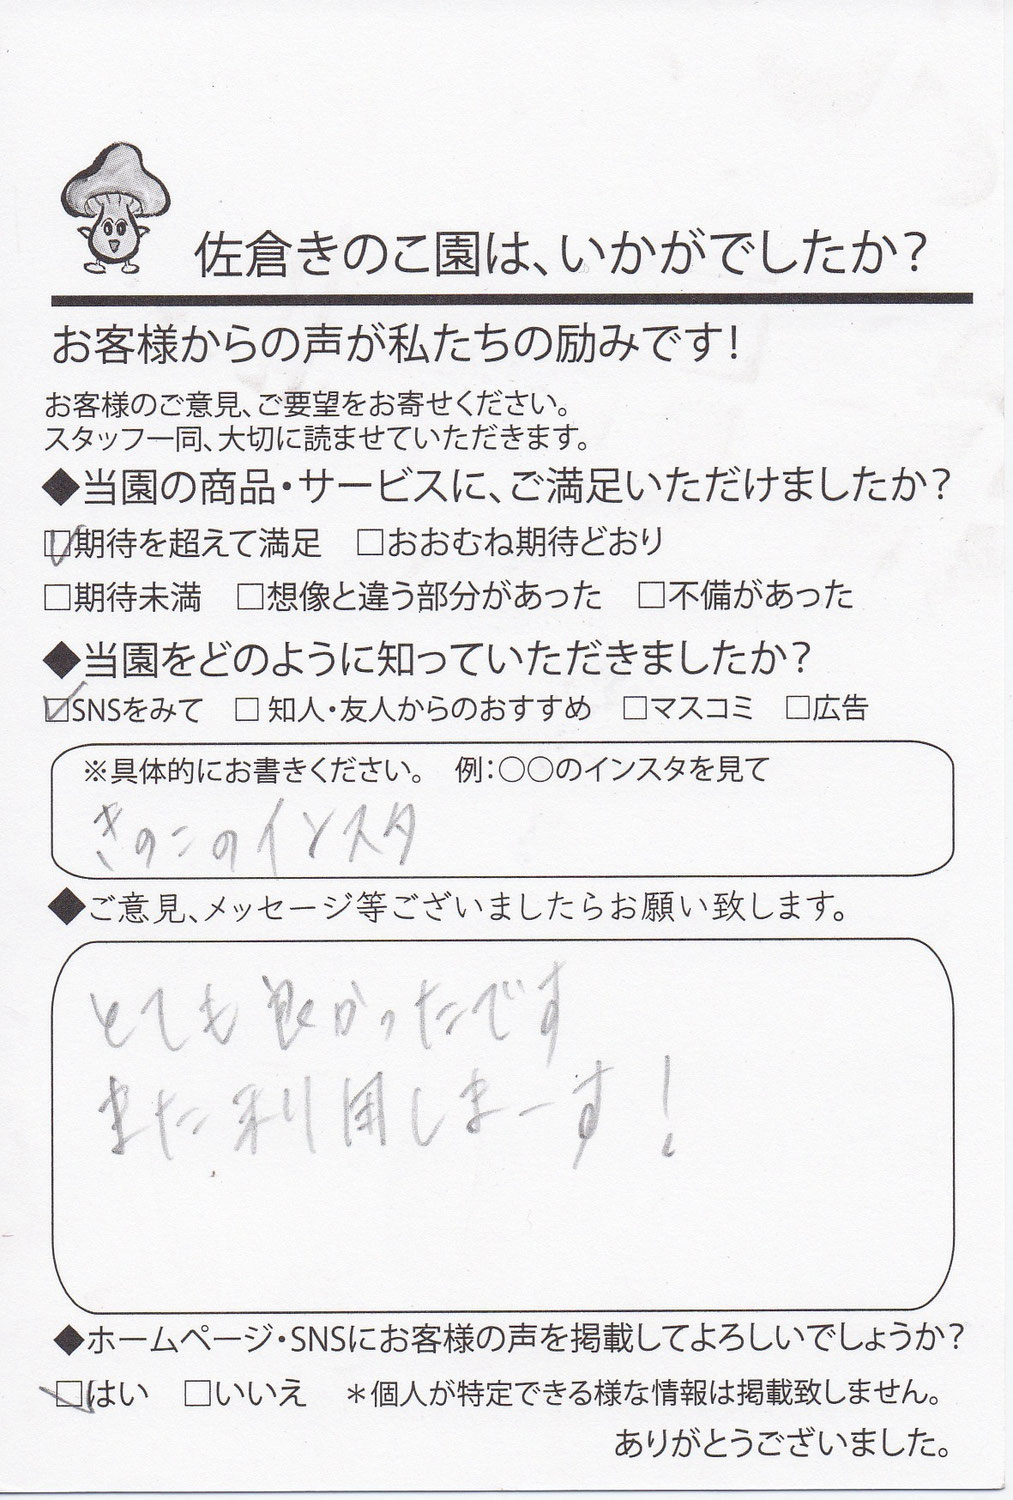 佐倉きのこ園は、いかがでしたか？
お客様からの声が私たちの励みです！
お客様のご意見、ご要望をお寄せください。
スタッフ一同、大切に読ませていただきます。
◆当園の商品・サービスに、ご満足いただけましたか？
☑期待を超えて満足　□おおむね期待どおり
□期待未満　□想像と違う部分があった　□不備があった
◆当園をどのように知っていただきましたか？
☑SNSをみて　□ 知人・友人からのおすすめ　□マスコミ　□広告
※具体的にお書きください。　例：○○のインスタを見て
きのこのインスタ
◆ご意見、メッセージ等ございましたらお願い致します。
とても良かったです
また利用しまーす！
◆ホームページ・SNSにお客様の声を掲載してよろしいでしょうか？
☑はい　□いいえ　＊個人が特定できる様な情報は掲載致しません。
ありがとうございました。